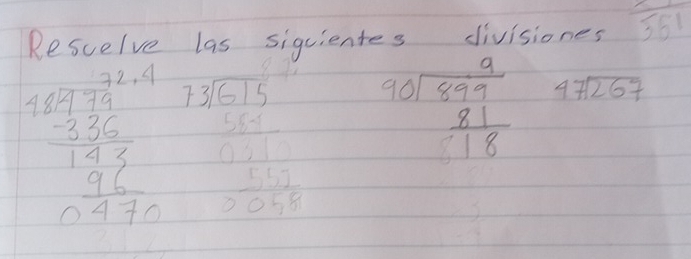 Resuelve las siguientes divisiones 561
72.4 9
48 479 73 615 90 899 47 267
-336 81
143 18
96
0470 0058